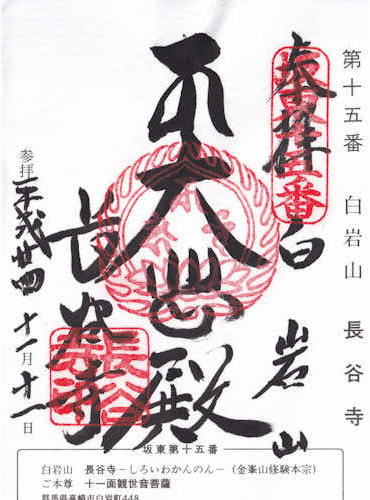 第十五番 白岩山 長谷寺
奉拝
坂東拾五番
白岩山
大悲殿
長谷寺
長谷寺
参拝 平成廿四 十一月 十一日
坂東第十五番
白岩山 長谷寺－しろいわかんのん－（金峯山修験本宗）
ご本尊 十一面観世音菩薩
群馬県高崎市白岩町448